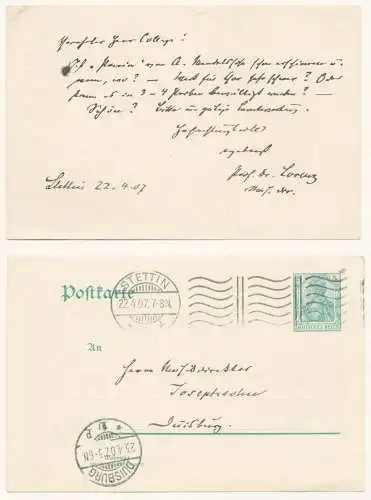 Verehrter Herr College!
Ist " von A. Mendelssohn schon erschienen u.
wann, wo? — Und für Chor sehr schwer? Oder
kann es in 3-4 Proben bewältigt werden? —
Schön? Bitte um gütige
Hochachtungsvoll
ergebenst
Prof. Dr. Lorenz
Stettin 22.4.07
Postkarte
STETTIN
22.4.07.7-8N.
DEUTSCHES REICH
An
Herrn Musikdirektor
Josephson
Duisburg
DUISBURG
23.4.07.5-6N